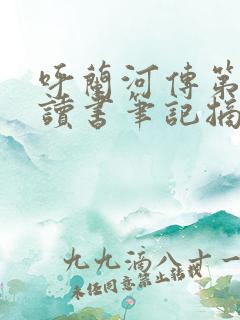 呼蘭河傳第
讀書筆記摘
九九滴八十一
未经同意禁止转载